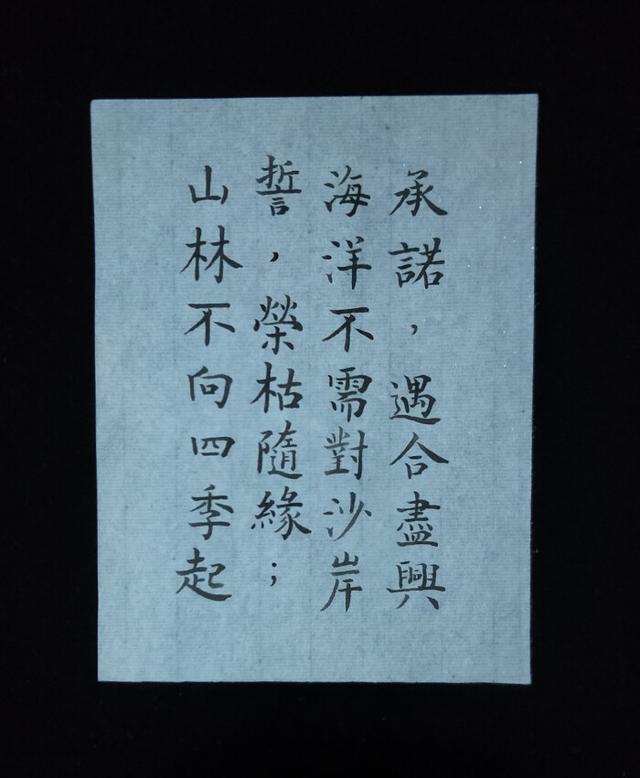 山林不向四季起
誓，榮枯隨緣；
海洋不需對沙岸
承諾，遇合盡興